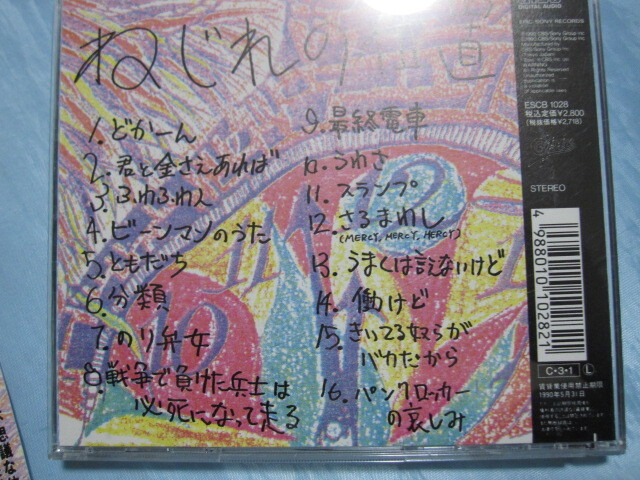 ねじれの
道
1. どかーん
2. 君と金さえあれば
3. ふわふわ人
4. ビーンマンのうた
5. ともだち
6. 分類
7. のり弁女
8. 戦争で負けた兵士は
必死になって走る
9. 最終電車
10. うわさ
11. スランプ
12. さるまわし
(MERCY, MERCY, MERCY)
13. うまくは言えないけど
14. 働けど
15. きいてる奴らが
バカだから
16. パンクロッカー
の哀しみ
DIGITAL AUDIO
EPIC/SONY RECORDS
ESCB 1028
税込定価¥2,800
(税抜価格¥2,718)
STEREO
4 988010 102821
C・3・1 L
賃貸業使用禁止期間
1990年5月31日
思議な